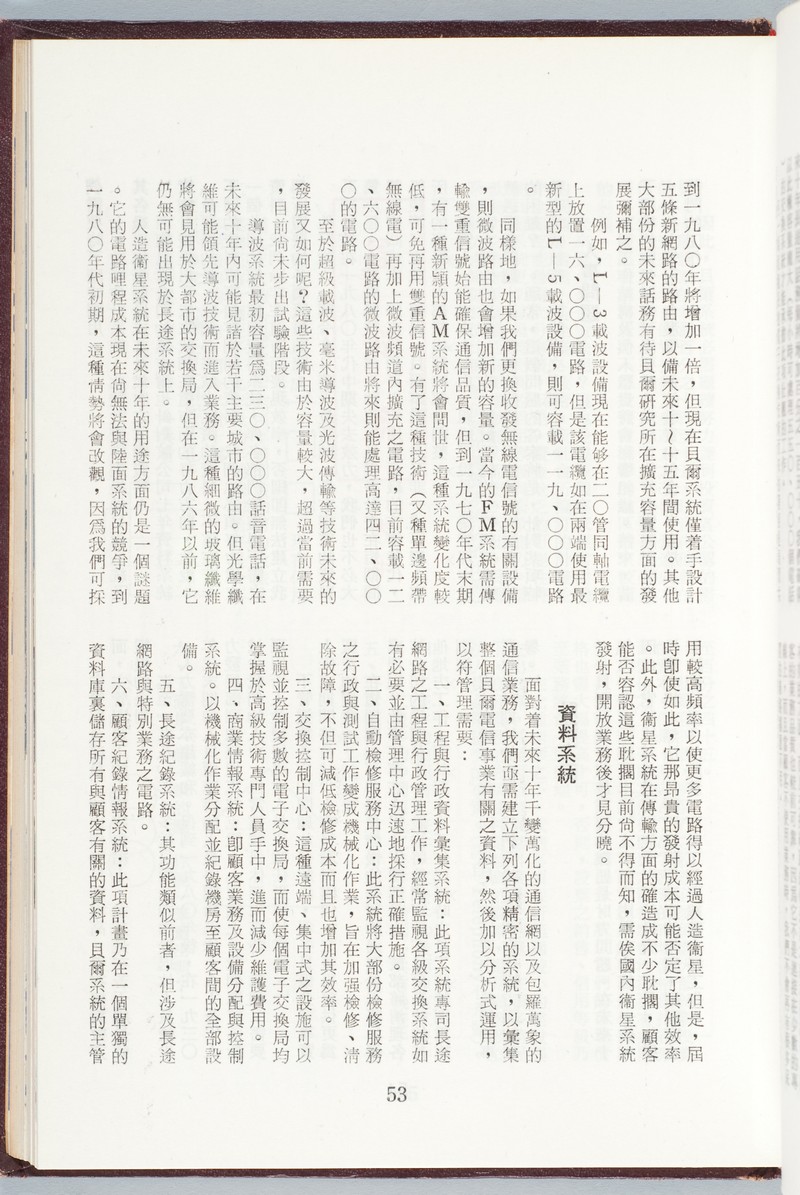 到一九八〇年將增加一倍，但現在貝爾系統僅着手設計
五條新網路的路由，以備未來十～十五年間使用。其他
大部份的未來話務有待貝爾研究所在擴充容量方面的發
展彌補之。
例如，L－3載波設備現在能够在二〇管同軸電纜
上放置一六、〇〇〇電路，但是該電纜如在兩端使用最
新型的L－5載波設備，則可容載一一九、〇〇〇電路
。
同樣地，如果我們更換收發無線電信號的有關設備
，則微波路由也會增加新的容量。當今的FM系統需傳
輸雙重信號始能確保通信品質，但到一九七〇年代末期
，有一種新頴的AM系統將會問世，這種系統變化度較
低，可免再用雙重信號。有了這種技術（又種單邊頻帶
無線電）再加上微波頻道內擴充之電路，目前容載一二
、六〇〇電路的微波路由將來則能處理高達四二、〇〇
〇的電路。
至於超級載波、毫米導波及光波傳輸等技術未來的
發展又如何呢？這些技術由於容量較大，超過當前需要
，目前尙未步出試驗階段。
導波系統最初容量爲二三〇、〇〇〇話音電話，在
未來十年內可能見諸於若干主要城市的路由。但光學纖
維可能領先導波技術而進入業務。這種細微的玻璃纖維
將會見用於大都市的交換局，但在一九八六年以前，它
仍無可能出現於長途系統上。
人造衞星系統在未來十年的用途方面仍是一個謎題
。它的電路哩程成本現在尙無法與陸面系統的競爭，到
一九八〇年代初期，這種情勢將會改觀，因爲我們可採
用較高頻率以使更多電路得以經過人造衞星，但是，屆
時卽使如此，它那昂貴的發射成本可能否定了其他效率
。此外，衞星系統在傳輸方面的確造成不少耽擱，顧客
能否容認這些耽擱目前尙不得而知，需俟國內衞星系統
發射，開放業務後才見分曉。
資料系統
面對着未來十年千變萬化的通信網以及包羅萬象的
通信業務，我們亟需建立下列各項精密的系統，以彙集
整個貝爾電信事業有關之資料，然後加以分析式運用，
以符管理需要：
一、工程與行政資料彙集系統：此項系統專司長途
網路之工程與行政管理工作，經常監視各級交換系統如
有必要並由管理中心迅速地採行正確措施。
二、自動檢修服務中心：此系統將大部份檢修服務
之行政與測試工作變成機械化作業，旨在加强檢修、淸
除故障，不但可減低檢修成本而且也增加其效率。
三、交換控制中心：這種遠端、集中式之設施可以
監視並控制多數的電子交換局，而使每個電子交換局均
掌握於高級技術專門人員手中，進而減少維護費用。
四、商業情報系統：卽顧客業務及設備分配與控制
系統。以機械化作業分配並紀錄機房至顧客間的全部設
備。
五、長途紀錄系統：其功能類似前者，但涉及長途
網路與特別業務之電路。
六、顧客紀錄情報系統：此項計畫乃在一個單獨的
資料庫裏儲存所有與顧客有關的資料，貝爾系統的主管
53